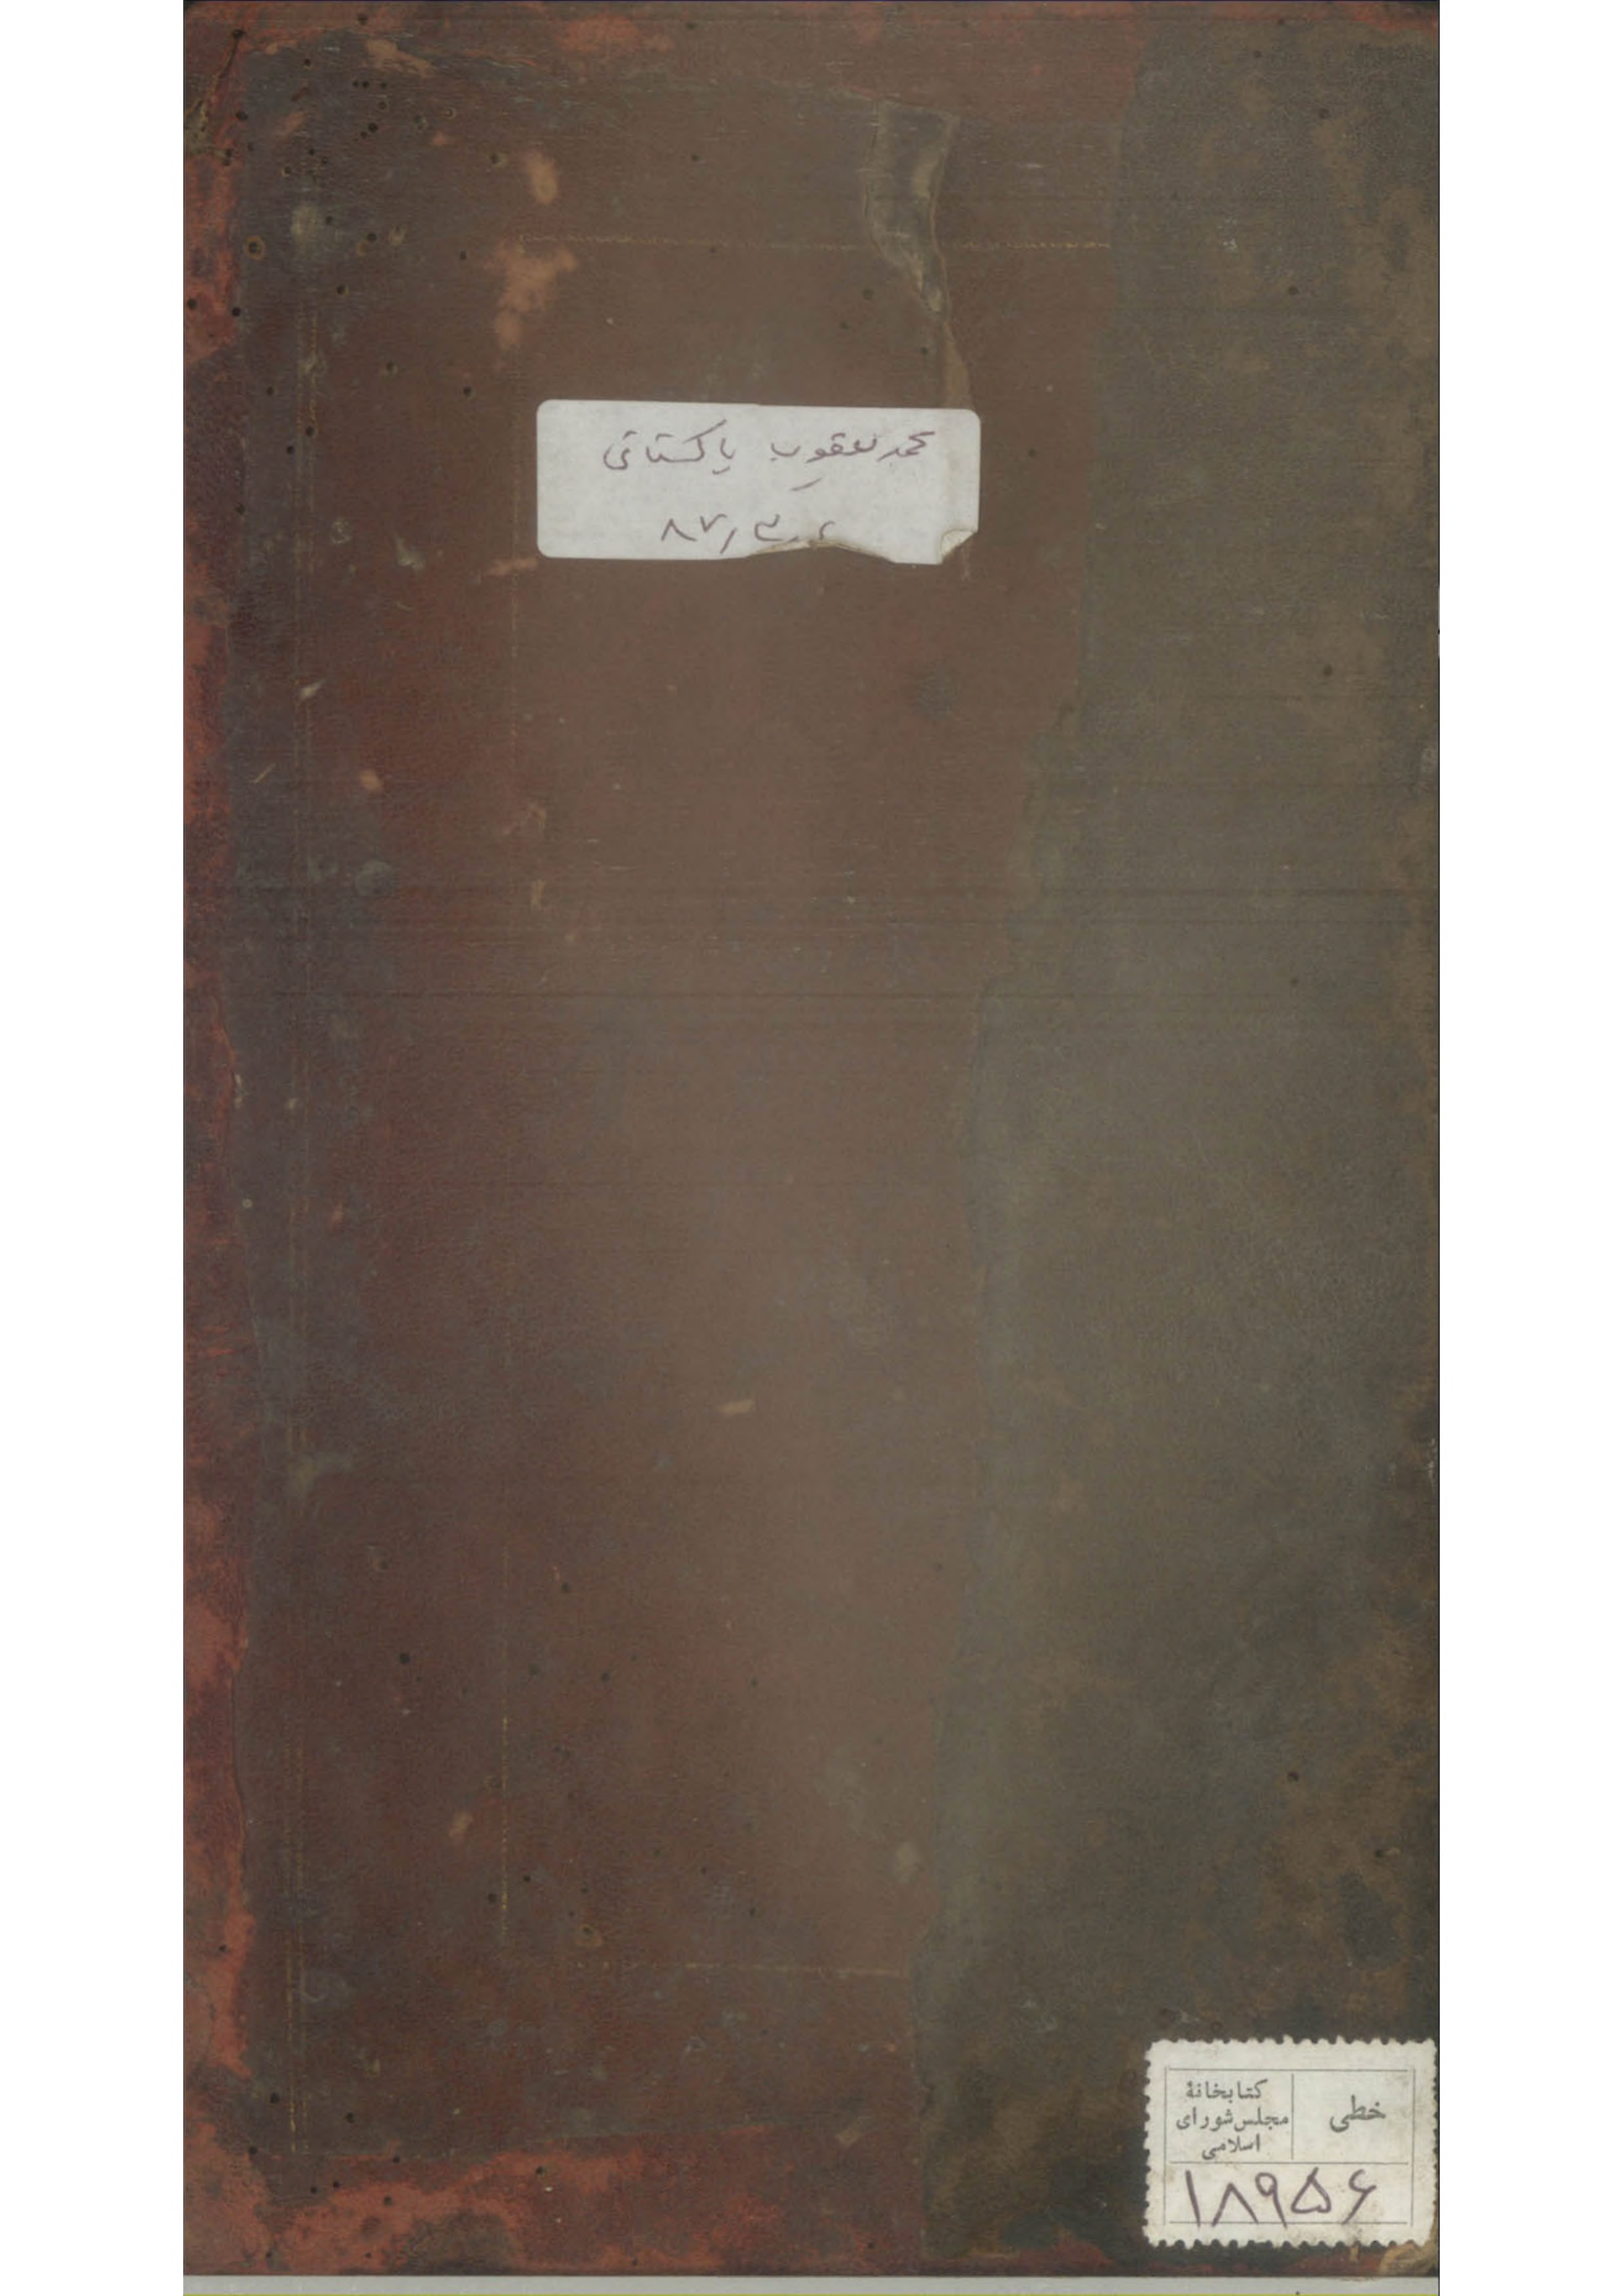 محمد یعقوب پاکستانی
۸۷/۳
خطی
کتابخانهٔ
مجلس شورای
اسلامی
۱۸۹۵۶